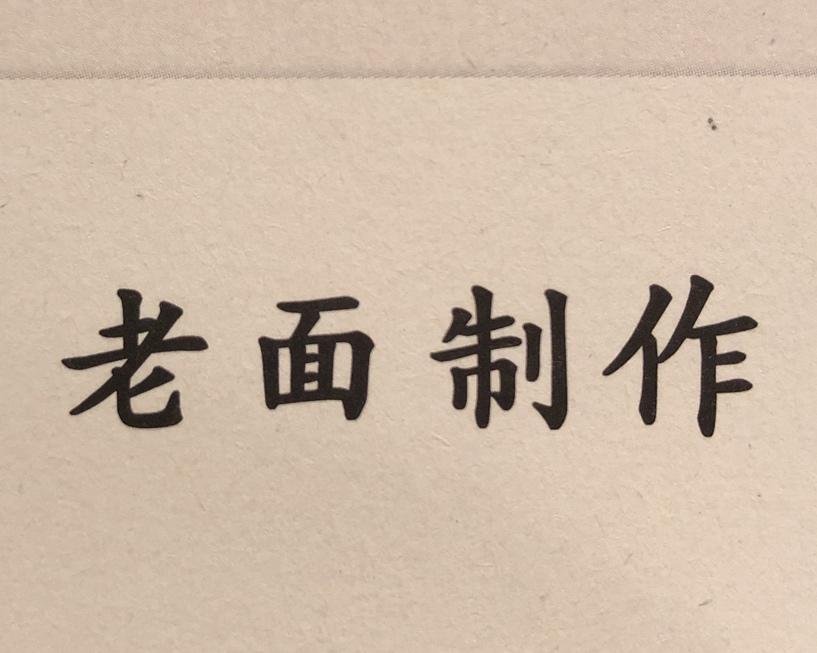 老面制作